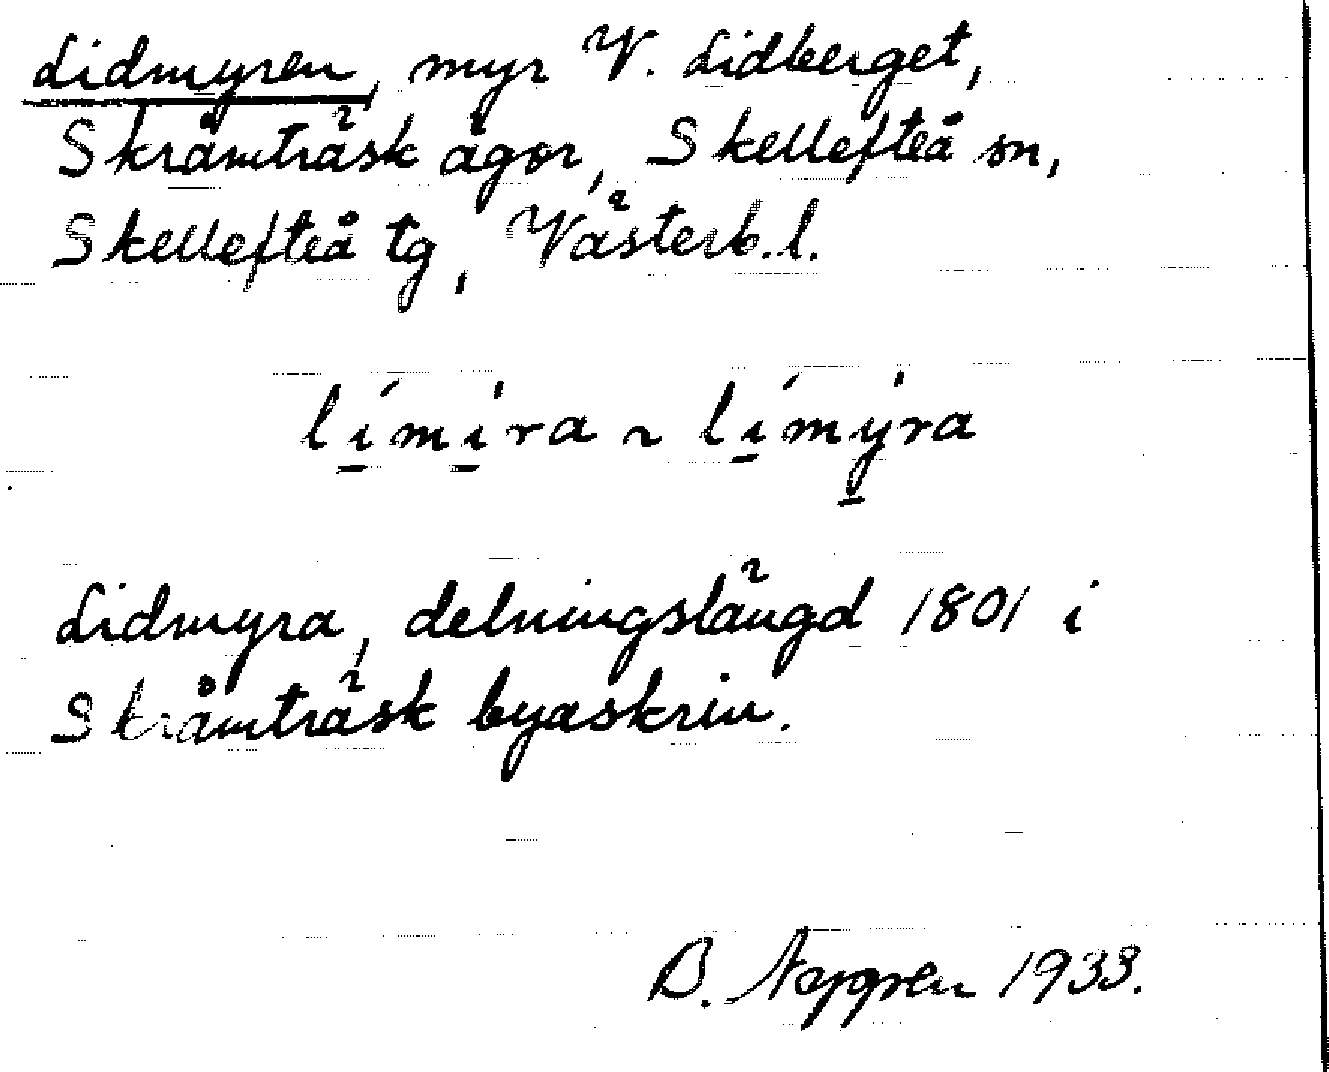 Lidmyren, myr V. Lidberget,
Skråmträsk ägor, Skellefteå sn,
Skellefteå tg, Västerb. l.
lí̱mí̱ra ~ lí̱mý̱ra
Lidmyra, delningslängd 1801 i
Skråmträsk byaskrin.
B. 1933.